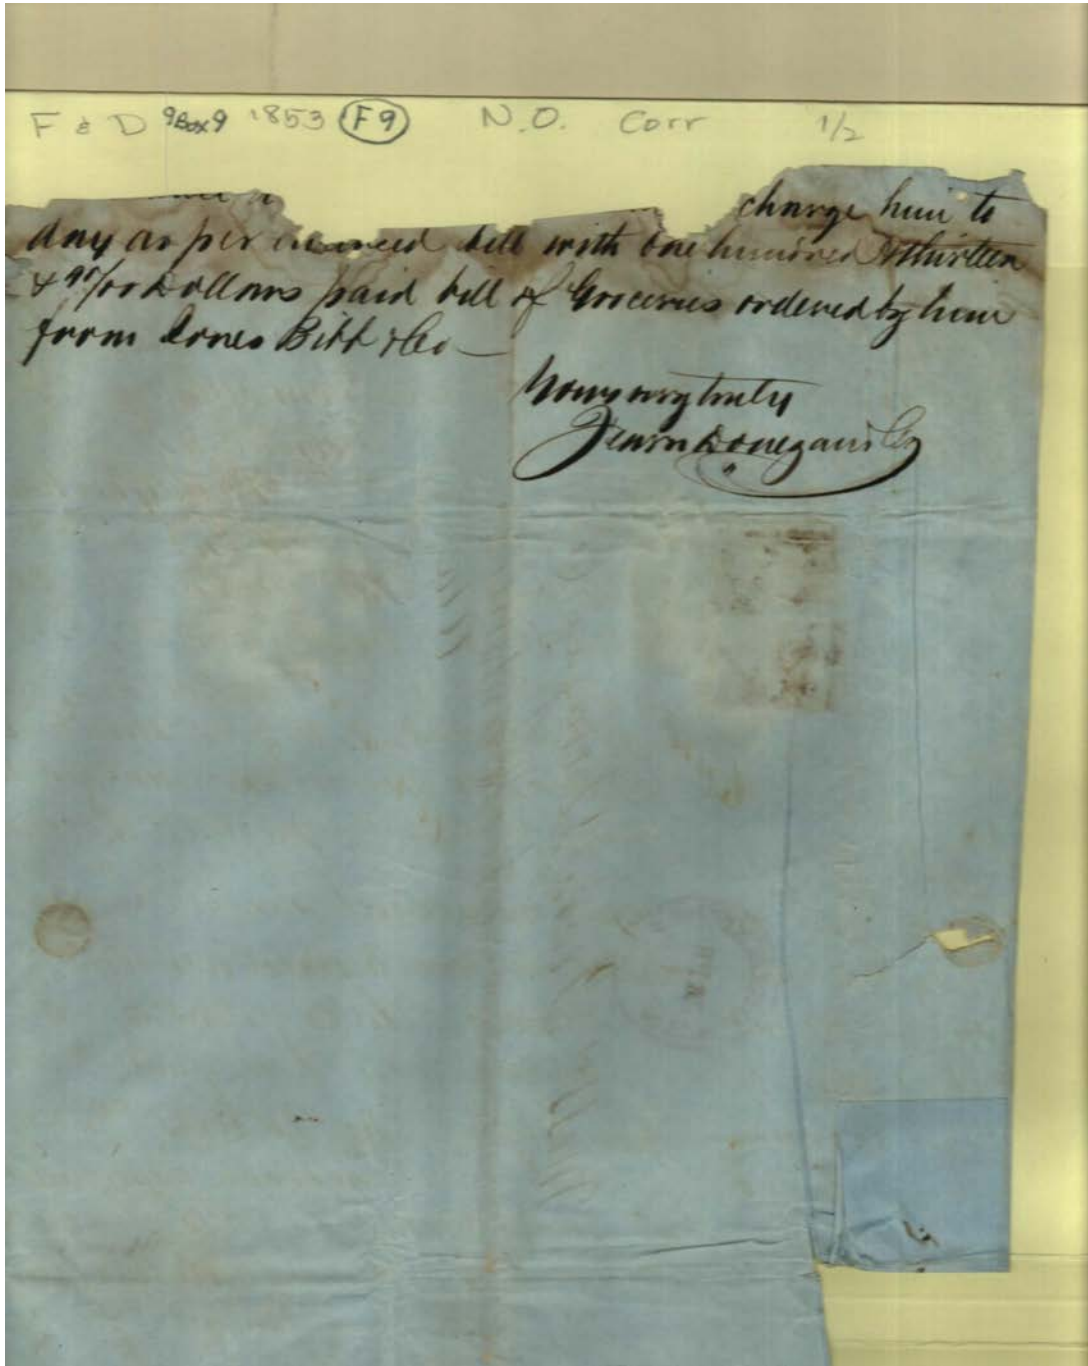 F & D Box 9 1853 F9 N.O. Corr 1/2
charge him to
day as per bill with One hundred & thirteen
& 90/100 Dollars paid bill of Groceries ordered by him
from Jones Bibb & Co —
Yours very truly
Fearn Donegan & Co